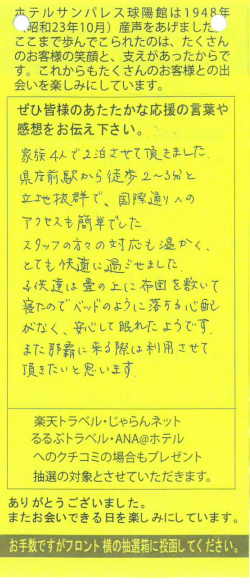 ホテルサンパレス球陽館は1948年
(昭和23年10月)産声をあげました。
ここまで歩んでこられたのは、たくさん
のお客様の笑顔と、支えがあったからで
す。これからもたくさんのお客様との出
会いを楽しみにしています。
ぜひ皆様のあたたかな応援の言葉や
感想をお伝え下さい。
家族4人で2泊させて頂きました。
県庁前駅から徒歩2~3分と
立地抜群で、国際通りへの
アクセスも簡単でした
スタッフの方々の対応も温かく、
とても快適に過ごせました。
子供達は畳の上に布団を敷いて
寝たのでベッドのように落ちる心配
がなく、安心して眠れたようです。
また那覇に来る際は利用させて
頂きたいと思います。
楽天トラベル・じゃらんネット
るるぶトラベル・ANA@ホテル
へのクチコミの場合もプレゼント
抽選の対象とさせていただきます。
ありがとうございました。
またお会いできる日を楽しみにしています。
お手数ですがフロント横の抽選箱に投函してください。